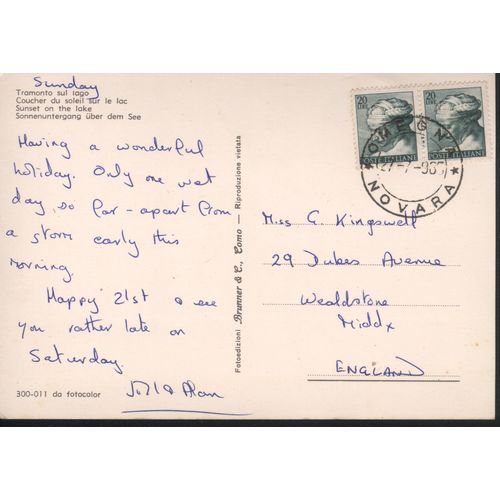 Sunday
Tramonto sul lago
Coucher du soleil sur le lac
Sunset on the lake
Sonnenuntergang über dem See
Having a wonderful
holiday. Only one wet
day, so far - apart from
a storm early this
morning.
Happy 21st & see
you rather late on
Saturday.
Alan
300-011 da fotocolor
Fotoedizioni Brunner & C., Como — Riproduzione vietata
20
LIRE
POSTE ITALIANE
20
LIRE
POSTE ITALIANE
NOVARA
Miss G. Kingswell
29 Dukes Avenue
Wealdstone
Middx
ENGLAND